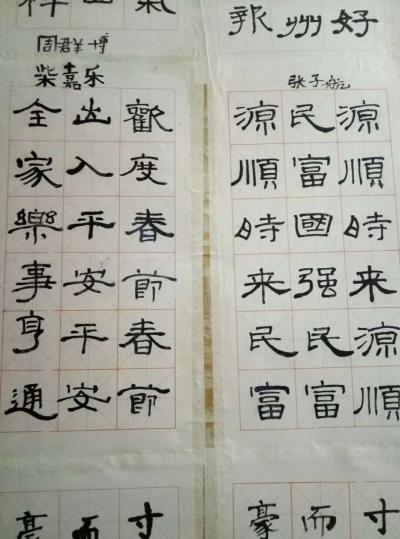 好
州
周群博
柴嘉乐
歡度春節春節
出入平安平安
全家樂事亨通
张子航
源順時来源順
民富國强民富
源順時来民富
寸
而
寸
而
豪